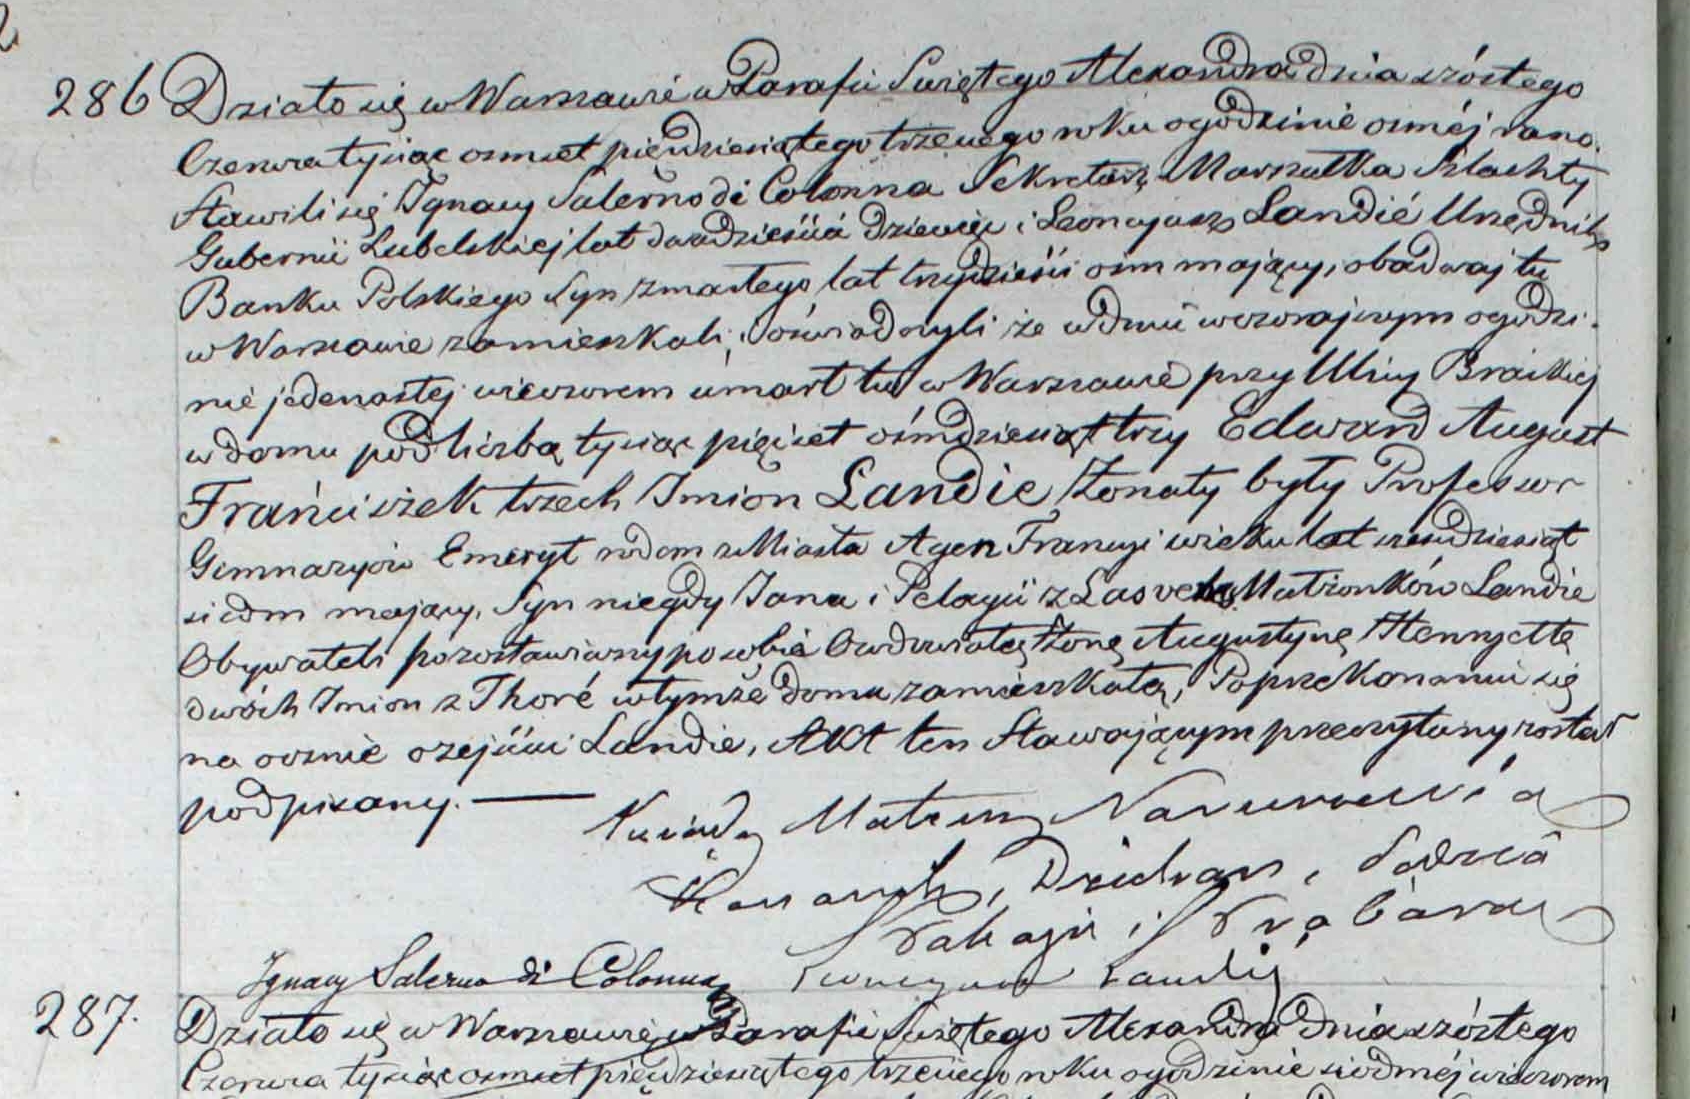 286 Działo się w Warszawie w Parafii Świętego Alexandra dnia szóstego
Czerwca tysiąc osmset pięćdziesiątego trzeciego roku o godzinie osméj rano.
Stawili się Ignacy Salerno di Colonna Sekretarz Marszałka Szlachty
Gubernii Lubelskiej lat dwadzieścia dziewięć i Leoncyusz Landié Urzędnik
Banku Polskiego Syn zmarłego lat trzydzieści osm mający, obadwaj tu
w Warszawie zamieszkali, i oświadczyli że w dniu wczorajszym o godzi-
nie jedenastej wieczorem umarł tu w Warszawie przy Ulicy Brackiej
w domu pod liczbą tysiąc pięćset ośmdziesiąt trzy Edward August
Franciszek trzech Imion Landie, Żonaty były Professor
Gimnazyów Emeryt rodem z Miasta Agen Francyi wieku lat sześćdziesiąt
siedm mający, Syn niegdy Jana i Pelagii z Małżonków Landie
Obywateli pozostawiwszy po sobie Owdowiałą Żonę Augustynę Henryettę
dwóch Imion z Thoré w tymże domu zamieszkałą, Po przekonaniu się
na ocznie o zejściu Landie, Akt ten Stawającym przeczytany został
podpisany. —
Ksiądz Mateusz
Kanonik, Dziekan, Sędzia
Prałacyi i
Ignacy Salerno di Colonna Leoncyusz Landié
287. Działo się w Warszawie w Parafii Świętego Alexandra dnia szóstego
Czerwca tysiąc osmset pięćdziesiątego trzeciego roku o godzinie siódméj wieczorem